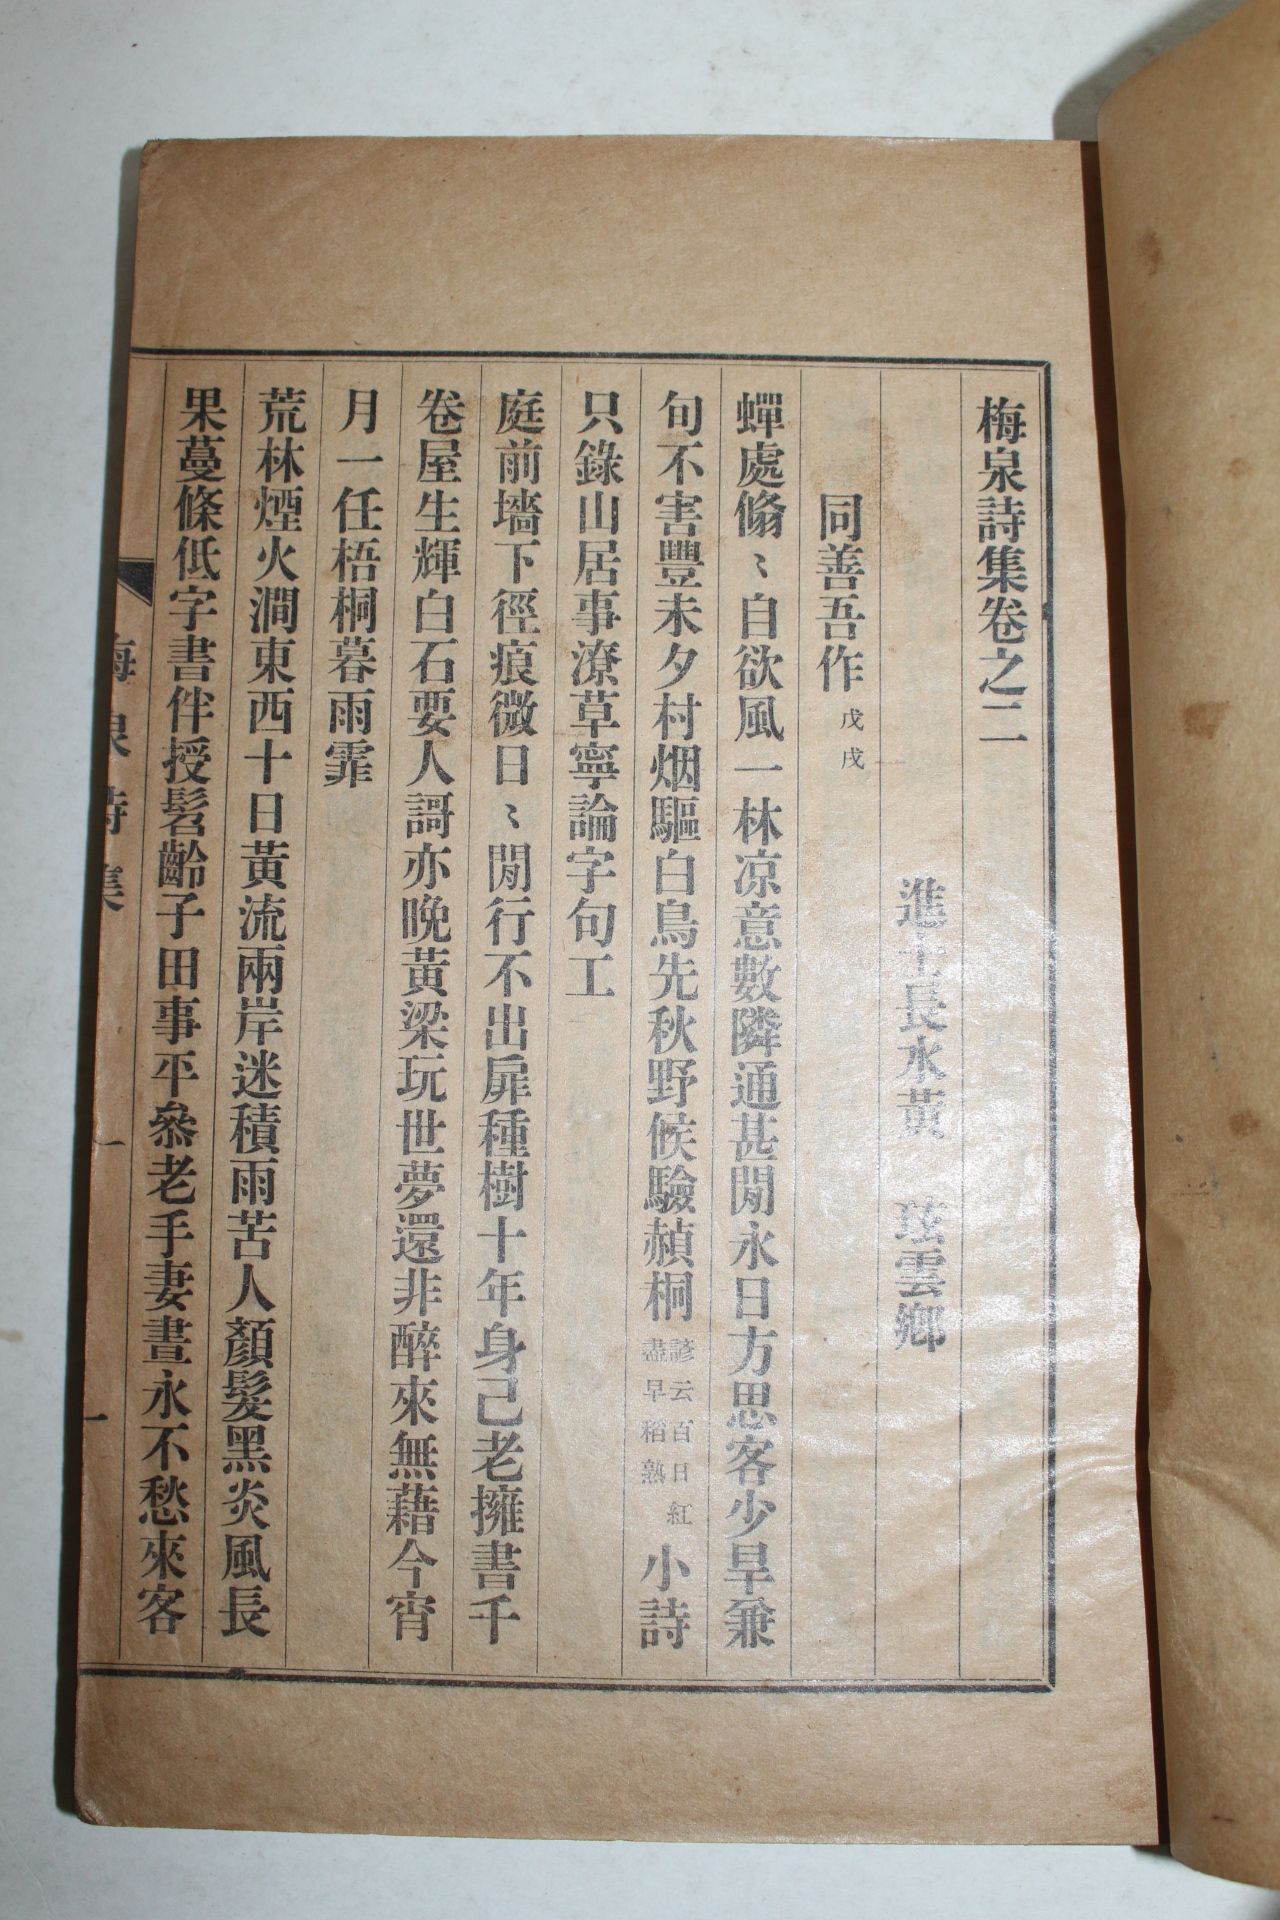 梅泉詩集卷之二
進士長水黃　玹雲卿
同善吾作 戊戌
蟬處翛〻自欲風一林凉意數隣通甚閒永日方思客少旱兼
句不害豐未夕村烟驅白鳥先秋野候驗赬桐 諺云百日紅盡早稻熟 小詩
只錄山居事潦草寧論字句工
庭前墻下徑痕微日〻閒行不出扉種樹十年身己老擁書千
卷屋生輝白石要人謌亦晩黃梁玩世夢還非醉來無藉今宵
月一任梧桐暮雨霏
荒林煙火澗東西十日黃流兩岸迷積雨苦人顏髮黑炎風長
果蔓條低字書伴授髫齡子田事平叅老手妻晝永不愁來客
梅泉詩集
一